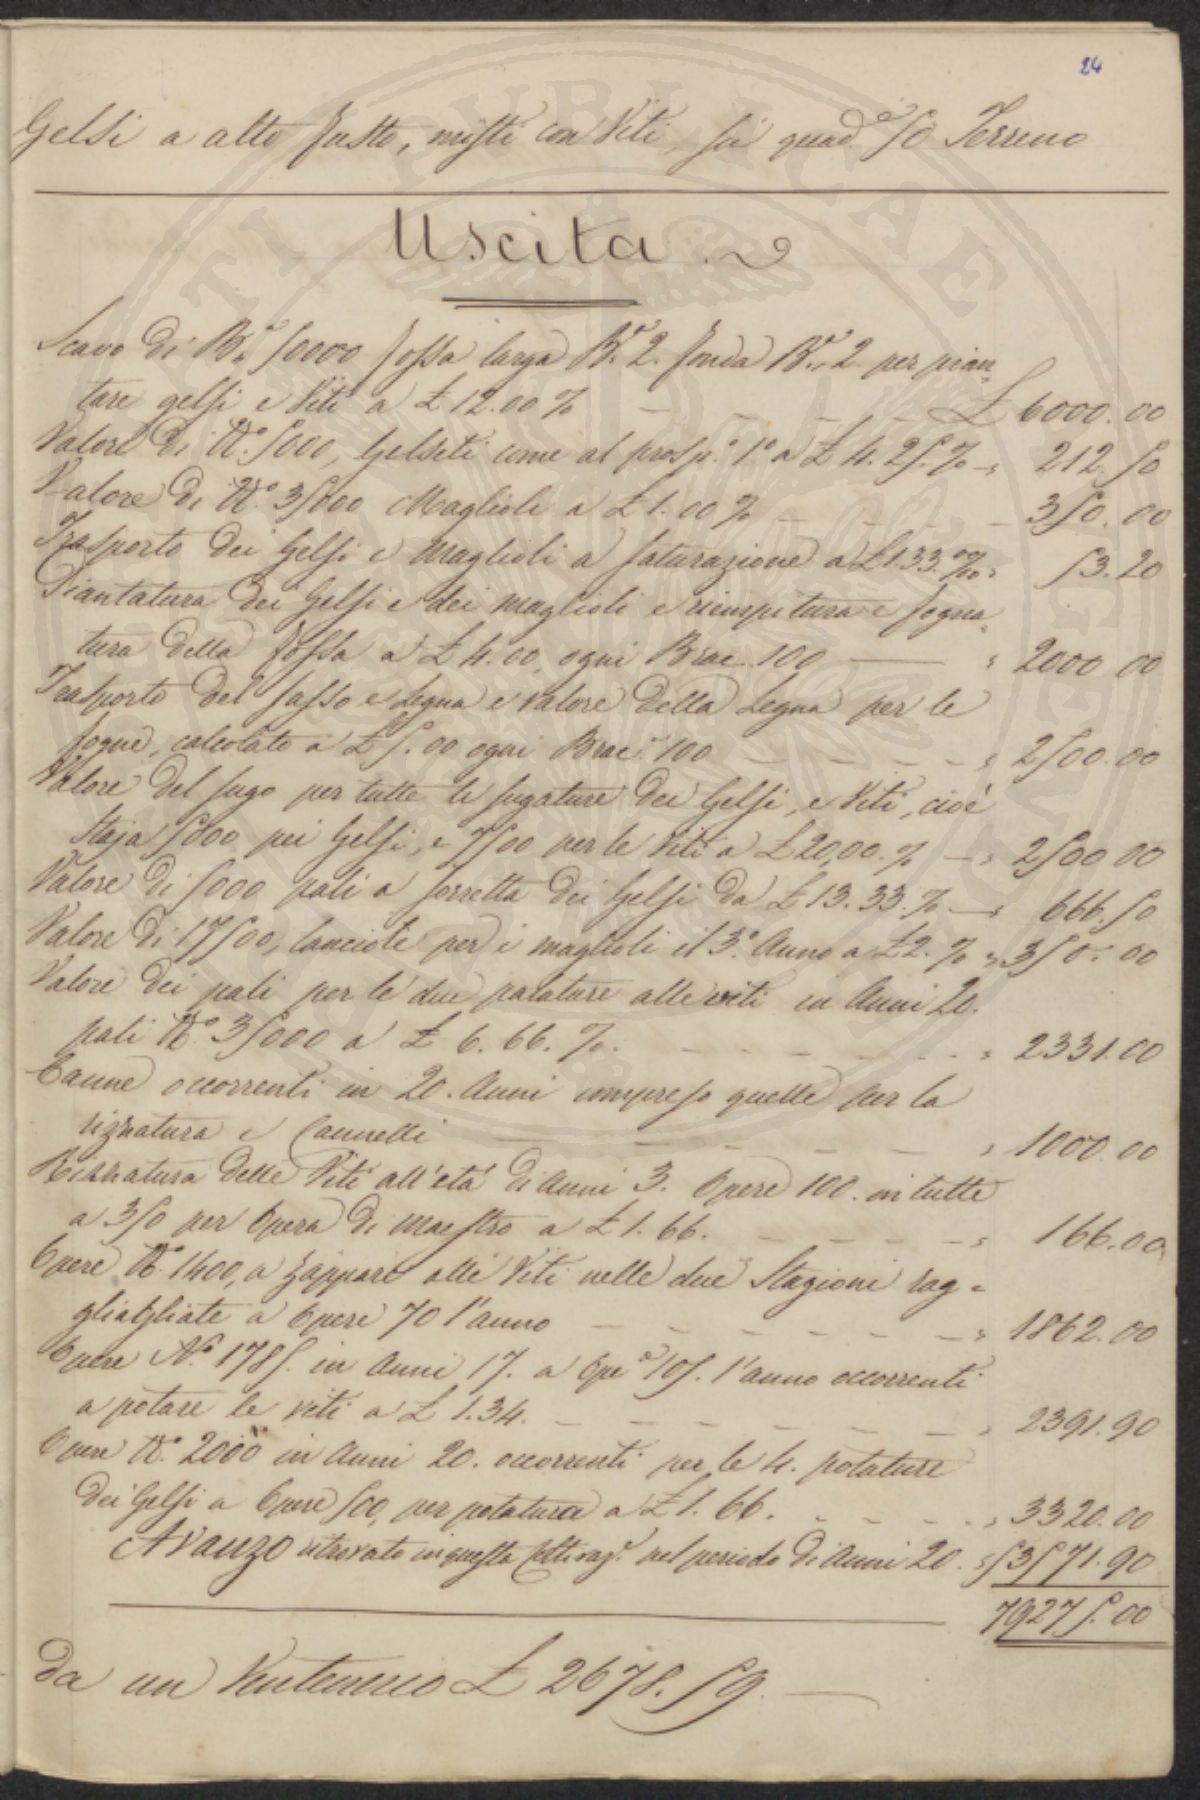 24
Gelsi a alto fusto, misti con Viti, su quad.ti 50 Terreno
Uscita.
Scavo di B.a 50000 fossa larga B.a 2. fonda B.a 2 per pian-
tare gelsi e Viti a £ 12.00 % — — — — £ 6000.00
Valore di N.o 5000, Gelseti come al prosp.o 1o a £ 4.25.% -" 212.50
Valore di N.o 35000 Maglioli a £ 1.00 % — — — — 350.00
Trasporto dei Gelsi e Maglioli a saturazione a £ 1.33.%o " 53.20
Piantatura dei Gelsi e dei maglioli e riempitura e fogna-
tura della fossa a £ 4.00, ogni Brac. 100 — " 2000 00
Trasporto del sasso e Legna e valore della Legna per le
fogne, calcolato a £ 5.00 ogni Brac.a 100 — — — — " 2500.00
Valore del sugo per tutte le sugature dei Gelsi, e Viti, cioè
Staja 5000 pei Gelsi, e 7500 per le Viti a £ 20,00.% — " 2500 00
Valore di 5000 pali a sorretta dei Gelsi da £ 13.33.% — " 666.50
Valore di 17500, lanciole per i maglioli il 3o. Anno a £ 2.% " 350.00
Valore dei pali per le due palature alle viti in Anni 20.
pali N.o 35000 a £ 6.66.%. — — — — — — " 2331.00
Canne occorrenti in 20. Anni compreso quelle per la
rizzatura e Cannelli — — — — — " 1000.00
Rizzatura delle Viti all'età di Anni 3. Opere 100. in tutte
a 350 per Opera di maestro a £ 1.66. — — — — — " 166.00
Opere N.o 1400, a zappare alle Viti nelle due Stagioni rag-
gliagliate a Opere 70 l'anno — — — — — — — " 1862.00
Opere N.o 1785. in Anni 17. a Ope.e 105. l'anno occorrenti
a potare le viti a £ 1.34. — — — — — — — " 2391.90
Opere N.o 2000 in Anni 20. occorrenti per le 4. potature
dei Gelsi a Opere 500, per potatura a £ 1.66. — — — — — " 3320.00
Avanzo ritrovato in questa Coltivaz.e nel periodo di Anni 20. " 53571.90
79275.00
da un Ventennio £ 2678.59. —